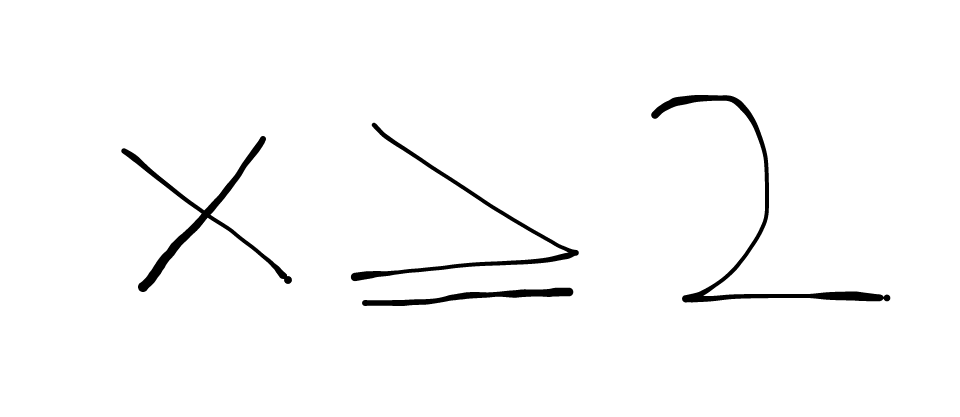 x ≥ 2